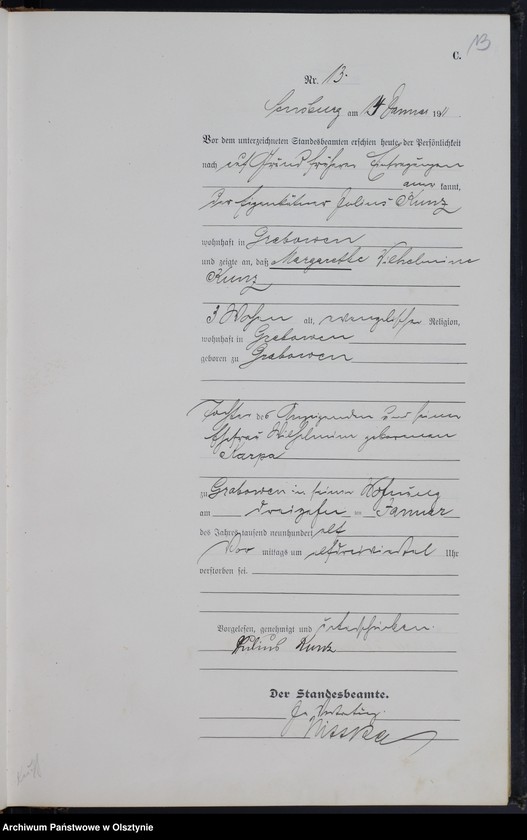 C.
13
Nr. 13.
Sensburg am 14 Januar 1911
Vor dem unterzeichneten Standesbeamten erschien heute, der Persönlichkeit
nach auf Grund früherer Eintragungen
aner kannt,
der Eigenkätner Julius Kunz
wohnhaft in Grabowen
und zeigte an, daß Margarethe Wilhelmine
Kunz
3 Wochen alt, evangelischer Religion,
wohnhaft in Grabowen
geboren zu Grabowen
Tochter des Anzeigenden und seiner
Ehefrau Wilhelmine geborenen
Karpa
zu Grabowen in seiner Wohnung
am dreizehn ten Januar
des Jahres tausend neunhundert elf
Vor mittags um elfdreiviertel Uhr
verstorben sei.
Vorgelesen, genehmigt und unterschrieben.
Julius Kunz
Der Standesbeamte.
In Vertretung.
Archiwum Państwowe w Olsztynie